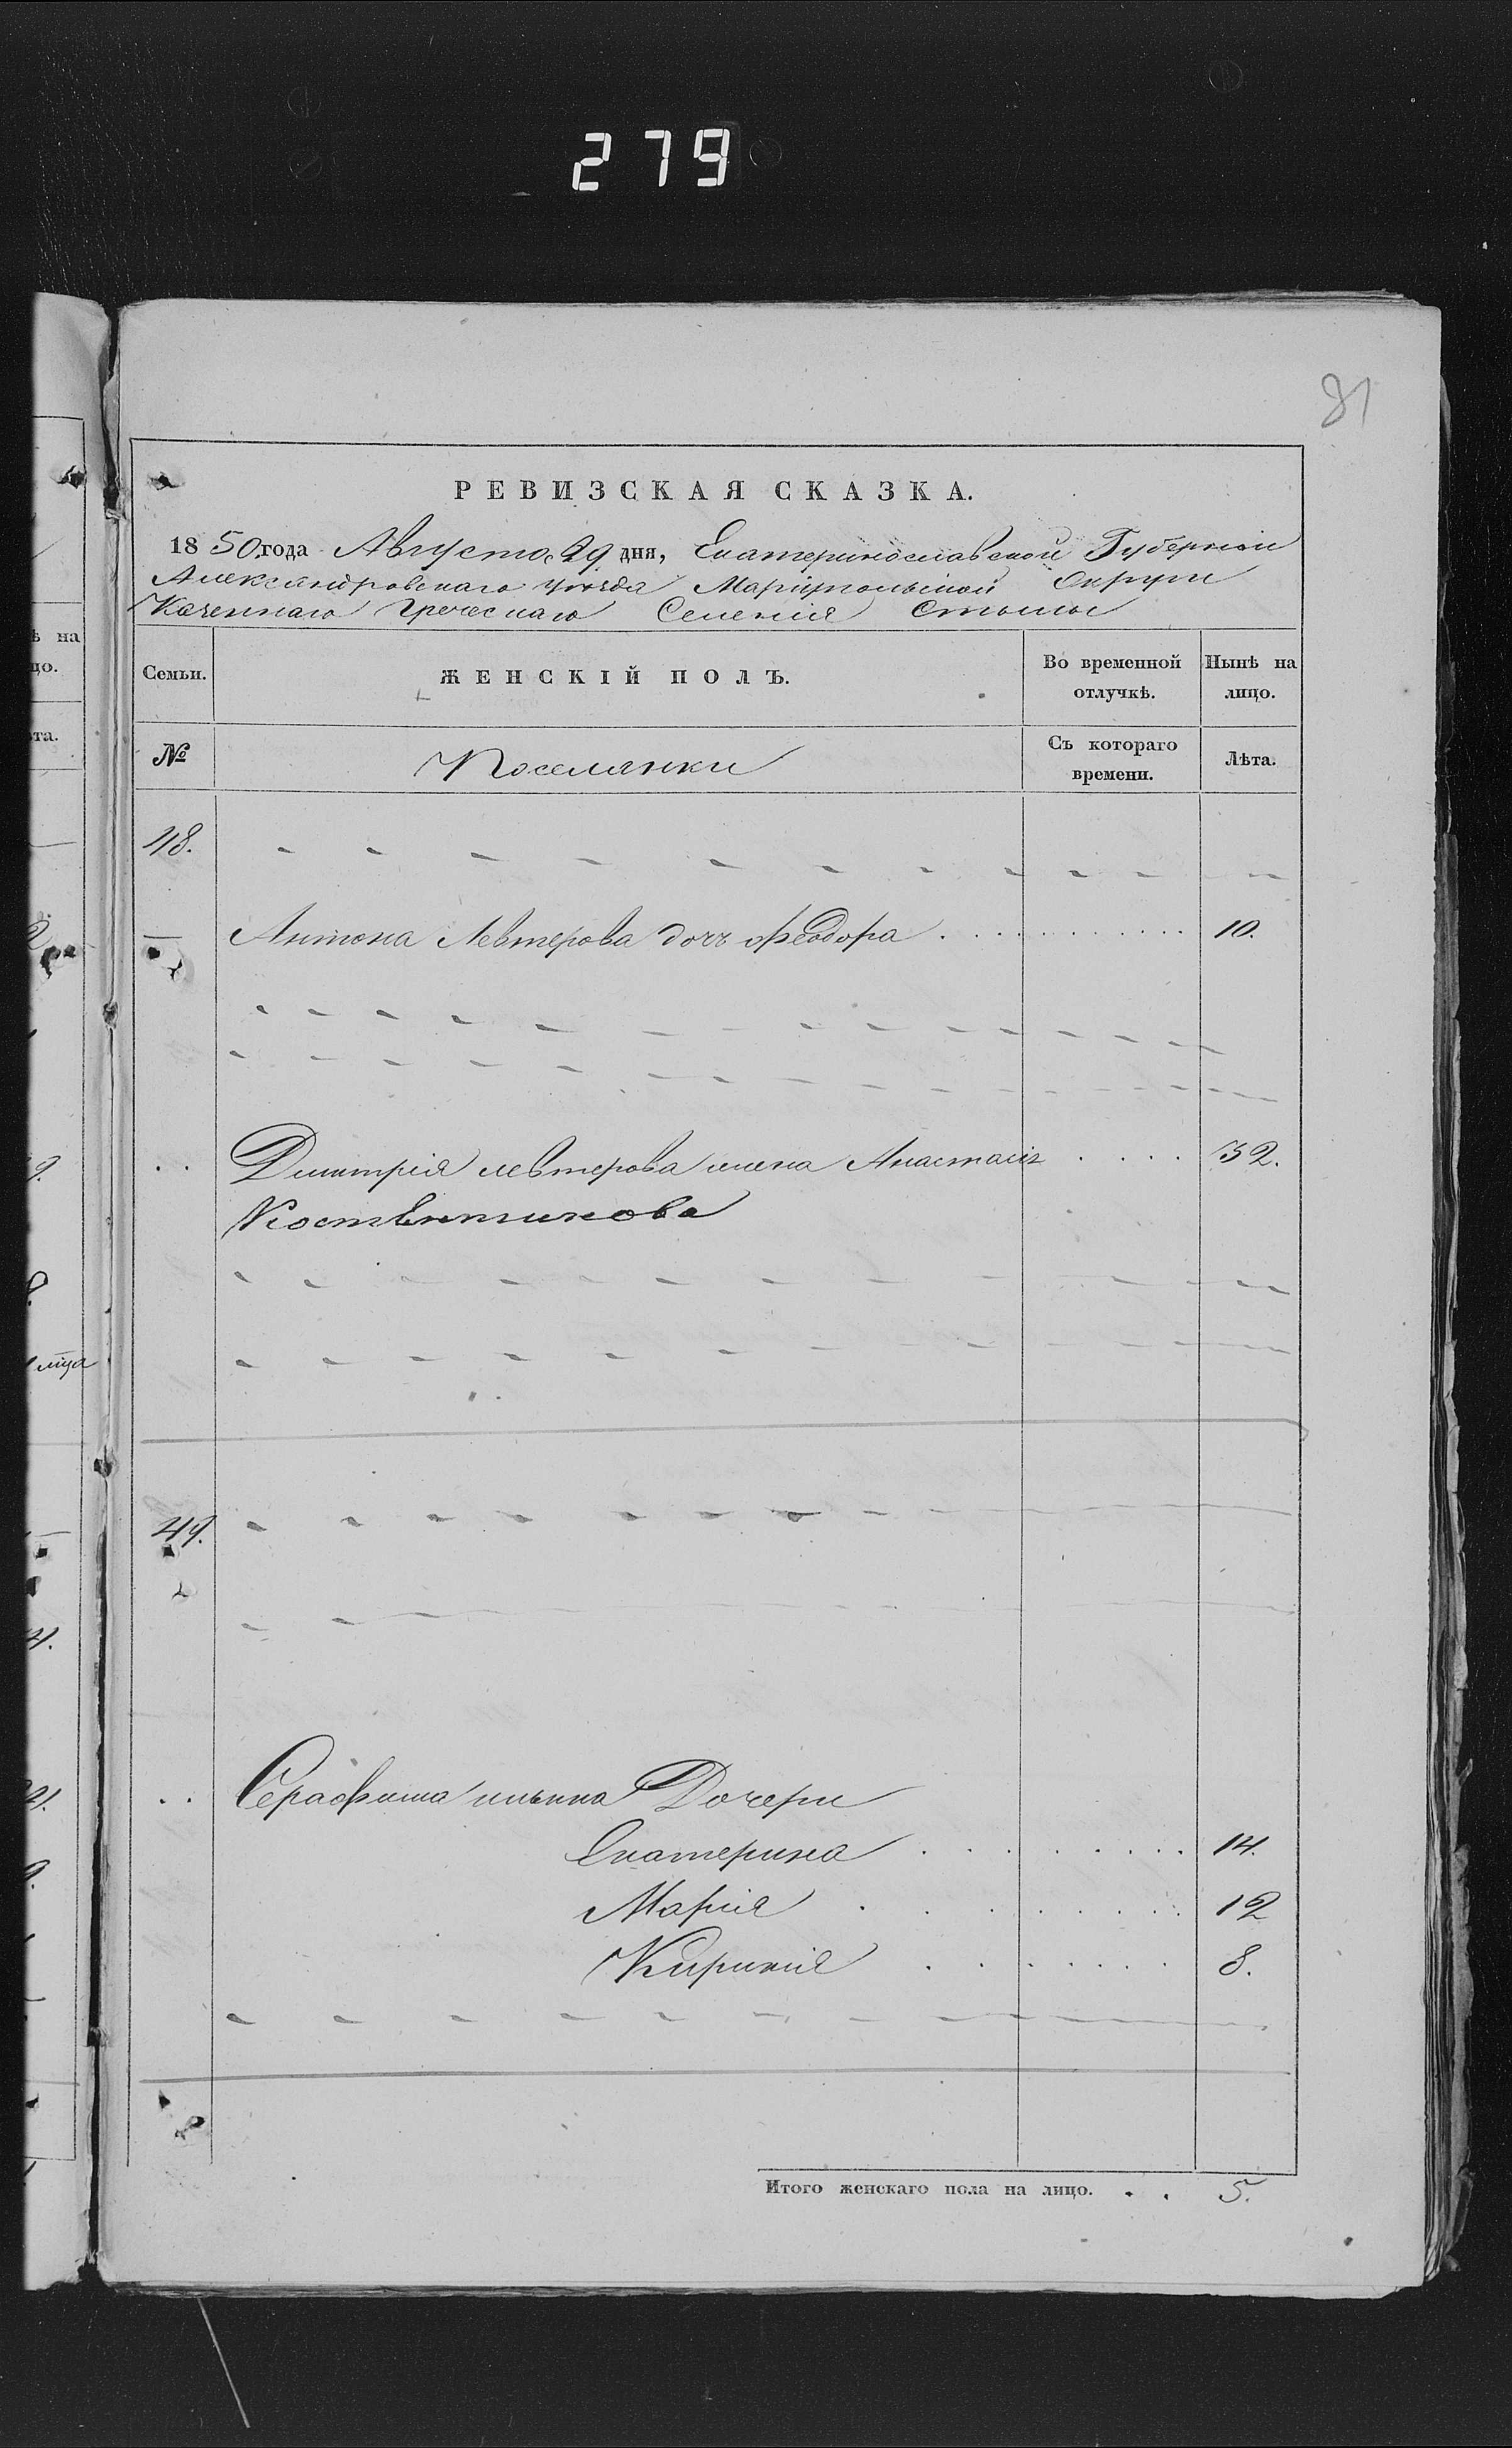 279
81
РЕВИЗСКАЯ СКАЗКА.
1850 года Августа 29 дня, Екатеринославской Губерніи
Александровскаго уѣзда Маріупольской Округи
Казеннаго Греческаго Селенія Стылы
Семьи. ЖЕНСКІЙ ПОЛЪ. Во временной отлучкѣ. Нынѣ на лицо.
№ Поселянки Съ котораго времени. Лѣта.
48.
Антона Левтерова дочь Феодора 10.
Дмитрія левтерова жена Анастасія 32.
Костентинова
49.
Серафима ильина Дочери
Екатерина 14.
Марія 12
Кирикія 8.
Итого женскаго пола на лицо. 5.